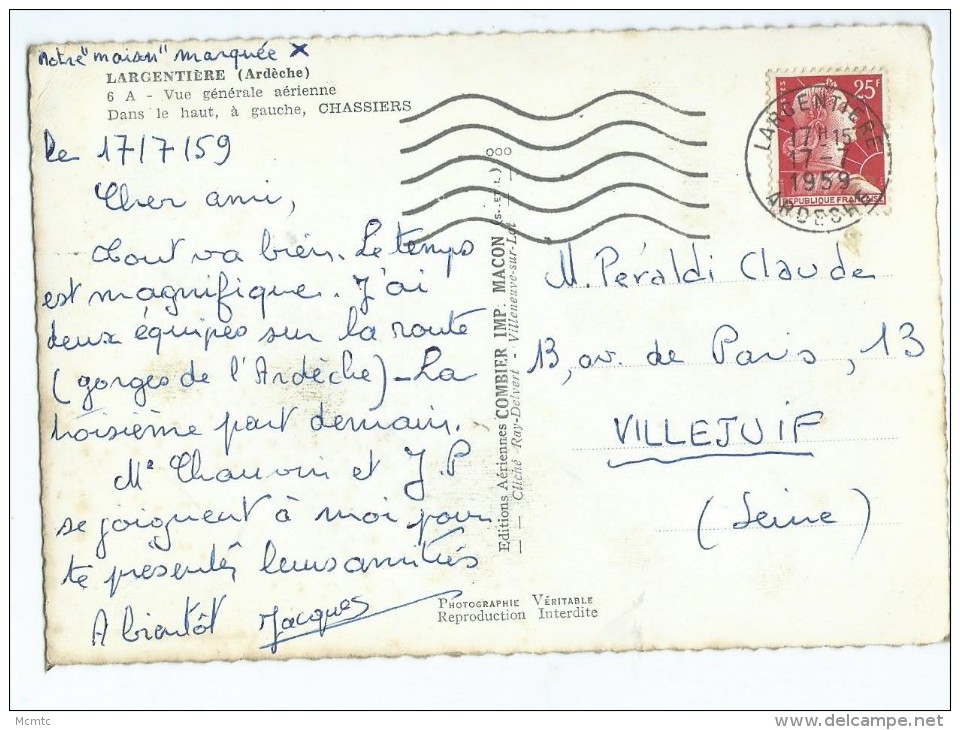 Notre "maison" marquée X
LARGENTIÈRE (Ardèche)
6 A - Vue générale aérienne
Dans le haut, à gauche, CHASSIERS
Le 17/7/59
Cher ami,
Tout va bien. Le temps
est magnifique. J'ai
deux équipes sur la route
(gorges de l'Ardèche) - La
troisième part demain.
Me Chauvin et J.P
se joignent à moi pour
te présenter leurs amitiés
A bientôt Jacques
Editions Aériennes COMBIER IMP. MACON (S.-ET-L.)
Cliché Ray-Delvert - Villeneuve-sur-Lot
PHOTOGRAPHIE VÉRITABLE
Reproduction Interdite
25F
REPUBLIQUE FRANÇAISE
LARGENTIERE
17H15
17 - 7
1959
ARDECHE
M. Péraldi Claude
13, av. de Paris, 13
VILLEJUIF
(Seine)
Mcmtc
delcampe.net